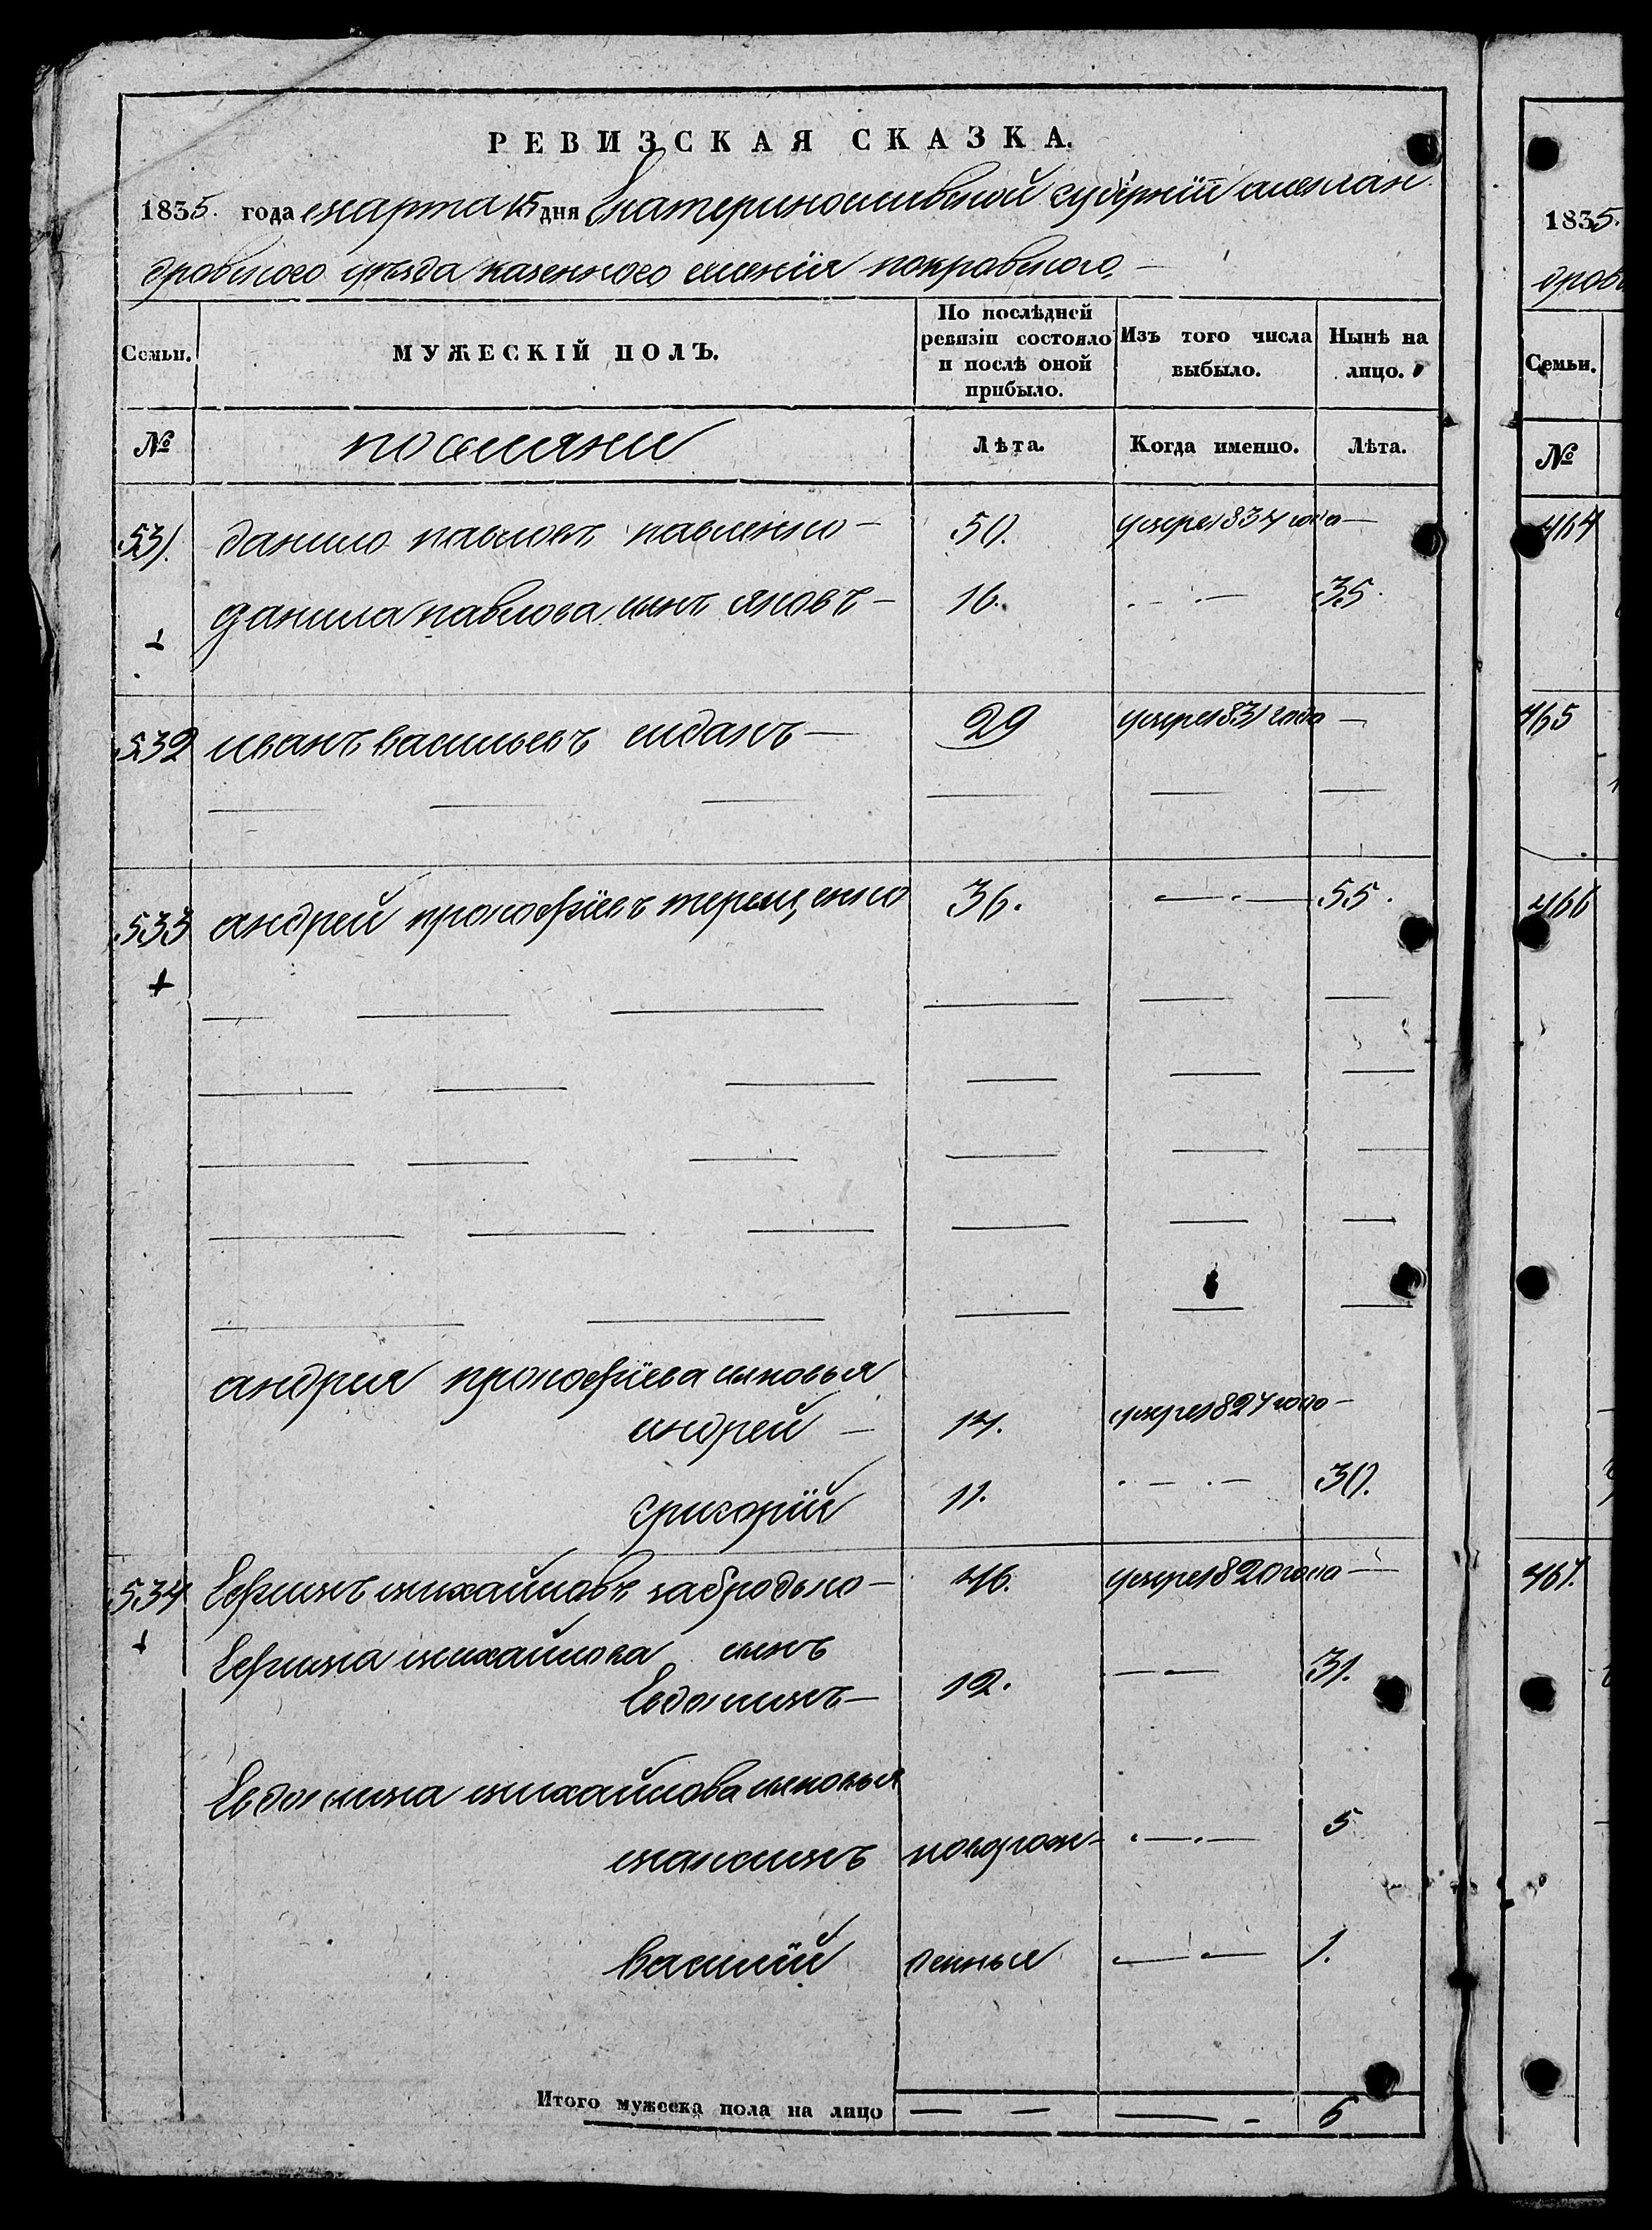 РЕВИЗСКАЯ СКАЗКА.
1835. года марта 15 дня Екатериносливской губернии алексан
дровского уѣзда казенного селения покровского.
Семьи. МУЖЕСКІЙ ПОЛЪ. По послѣдней ревизіи состояло и послѣ оной прибыло. Изъ того числа выбыло. Нынѣ на лицо.
№ поселяни Лѣта. Когда именно. Лѣта.
531. данило павловъ павленко — 50. умре 1834 года —
данила павлова сынъ яковъ — 16. 35.
532 иванъ васильевъ — 29 умре 1831 года —
533 андрей прокофіевъ терещенко 36. 55.
андрея прокофіева сыновья
андрей — 14. умре 1824 года —
григорій 11. 30.
534 Ефимъ михайловъ забродько — 46. умре 1820 года —
Ефима михайлова сынъ
Евдокимъ — 12. 31.
Евдокима михайлова сыновья
максимъ новорож- 5
василій денныя 1.
Итого мужеска пола на лицо — — 6
1835.
дров
Семьи.
№
464
465
466
467.